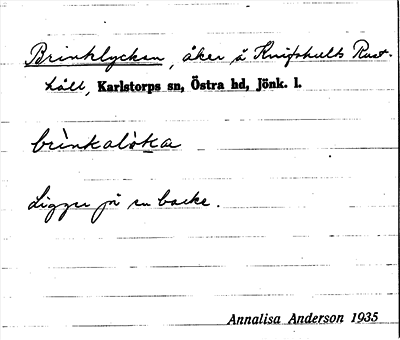 Brinklyckan, åker å Knifshults Rust-
håll, Karlstorps sn, Östra hd, Jönk. l.
brìnkalø̀ka
Ligger på en backe.
Annalisa Anderson 1935